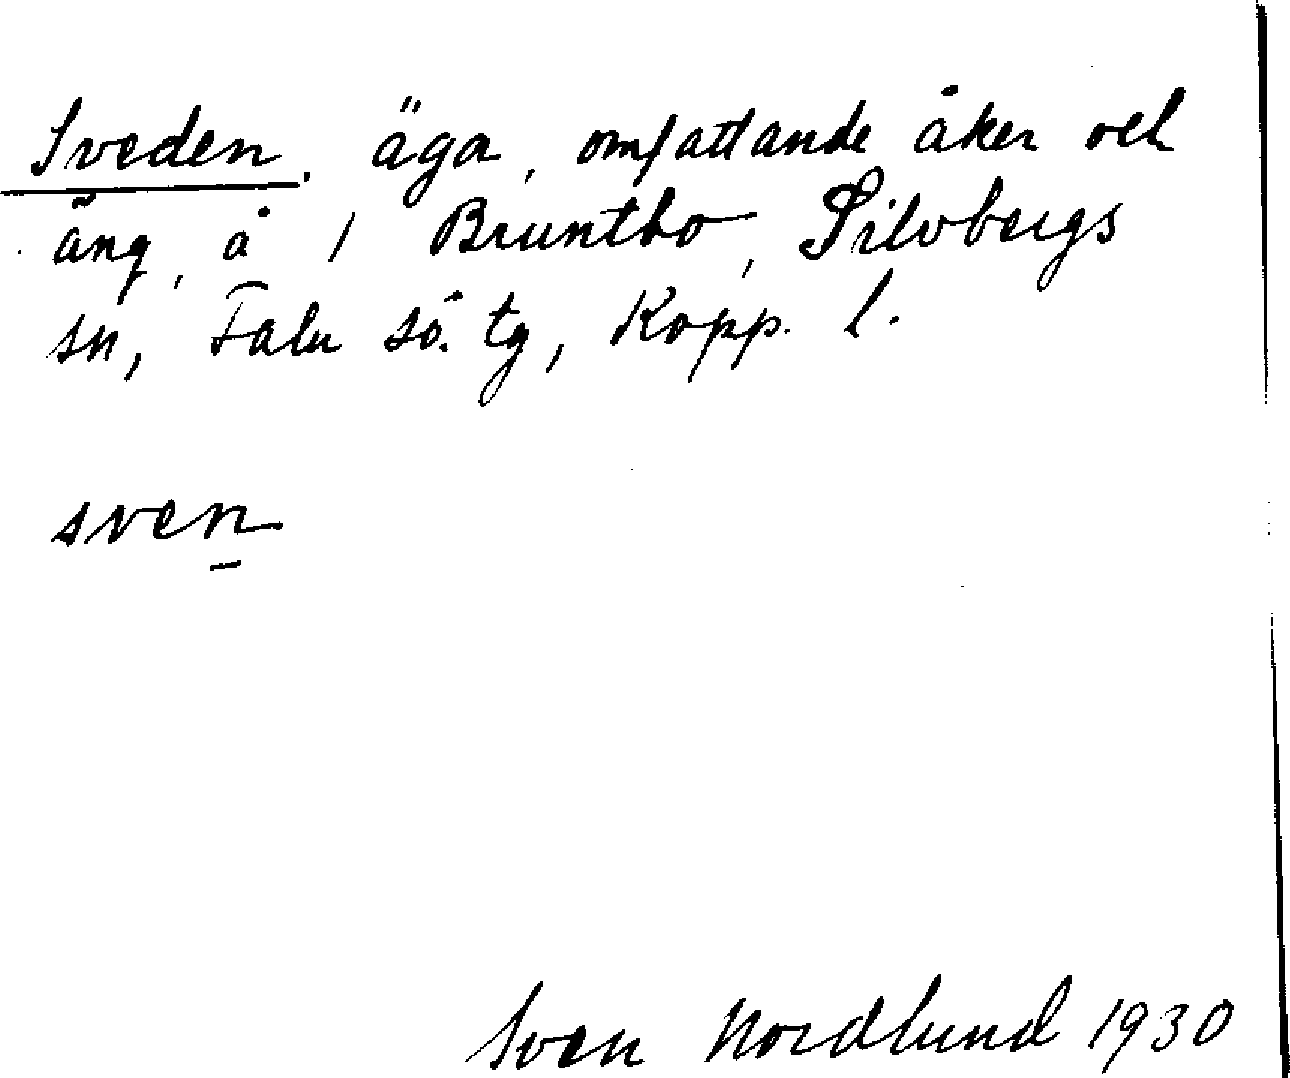 Sveden, äga, omfattande åker och
äng, å 1 Bruntbo, Silvbergs
sn, Falu sö. tg, Kopp. l.
sven
Sven Nordlund 1930